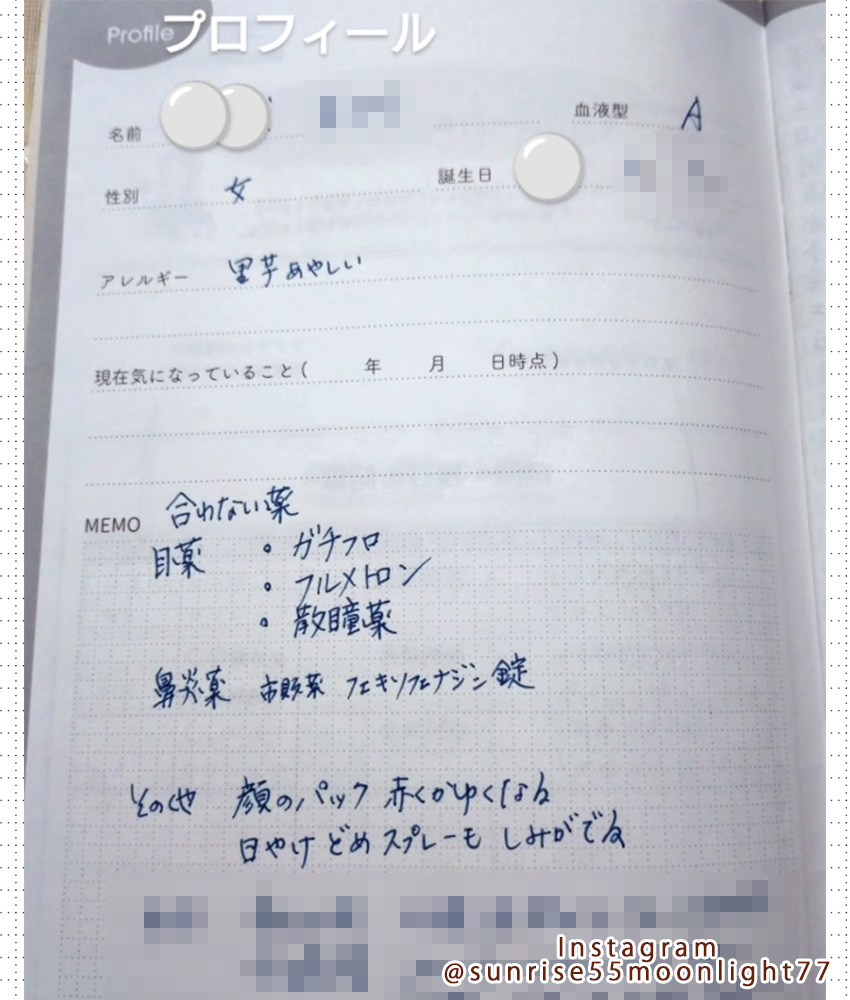 Profile プロフィール
名前
血液型 A
性別 女
誕生日
アレルギー 里芋あやしい
現在気になっていること( 年 月 日時点)
MEMO 合わない薬
目薬 ・ガチフロ
・フルメトロン
・散瞳薬
鼻炎薬 市販薬 フェキソフェナジン錠
その他 顔のパック 赤くかゆくなる
日やけどめスプレーも しみがでる
Instagram
@sunrise55moonlight77